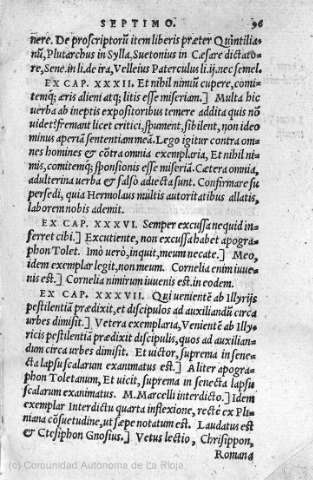 SEPTIMO. 96
nere. De proscriptorũ item liberis præter Quintilia-
nũ, Plutarchus in Sylla, Suetonius in Cæsare dictato-
re, Sene. in li. de ira, Velleius Paterculus li. ij. nec semel.
EX CAP. XXXII. Et nihil nimiũ cupere, comi-
temq; æris alieni atq; litis esse miseriam.] Multa hic
uerba ab ineptis expositoribus temere addita quis nõ
uidet? fremant licet critici, spument, sibilent, non ideo
minus apertã sententiam meã. Lego igitur contra om-
nes homines & cõtra omnia exemplaria, Et nihil ni-
mis, comitemq; sponsionis esse miseriã. Cætera omnia,
adulterina uerba & falsò adiecta sunt. Confirmare su
persedi, quia Hermolaus multis autoritatibus allatis,
laborem nobis ademit.
EX CAP. XXXVI. Semper excussa nequid in-
ferret cibi.] Excutiente, non excussa habet apogra-
phon Tolet. Imò uerò, inquit, meum necate.] Meo,
idem exemplar legit, non meum. Cornelia enim iuue-
nis est.] Cornelia nimirum iuuenis est. in eodem.
EX CAP. XXXVII. Qui uenientẽ ab Illyrijs
pestilentiã prædixit, et discipulos ad auxiliandũ circa
urbes dimisit.] Vetera exemplaria, Venientẽ ab Illy-
ricis pestilentiã prædixit discipulis, quos ad auxilian-
dum circa urbes dimisit. Et uictor, suprema in senec-
ta lapsu scalarum exanimatus est.] Aliter apogra-
phon Toletanum, Et uicit, suprema in senecta lapsu
scalarum exanimatus. M. Marcelli interdicto.] Idem
exemplar Interdictu quarta inflexione, rectè ex Pli-
niana cõsuetudine, ut sæpe notatum est. Laudatus est
& Ctesiphon Gnosius.] Vetus lectio, Chrisippon,
Romana
(c) Comunidad Autónoma de La Rioja